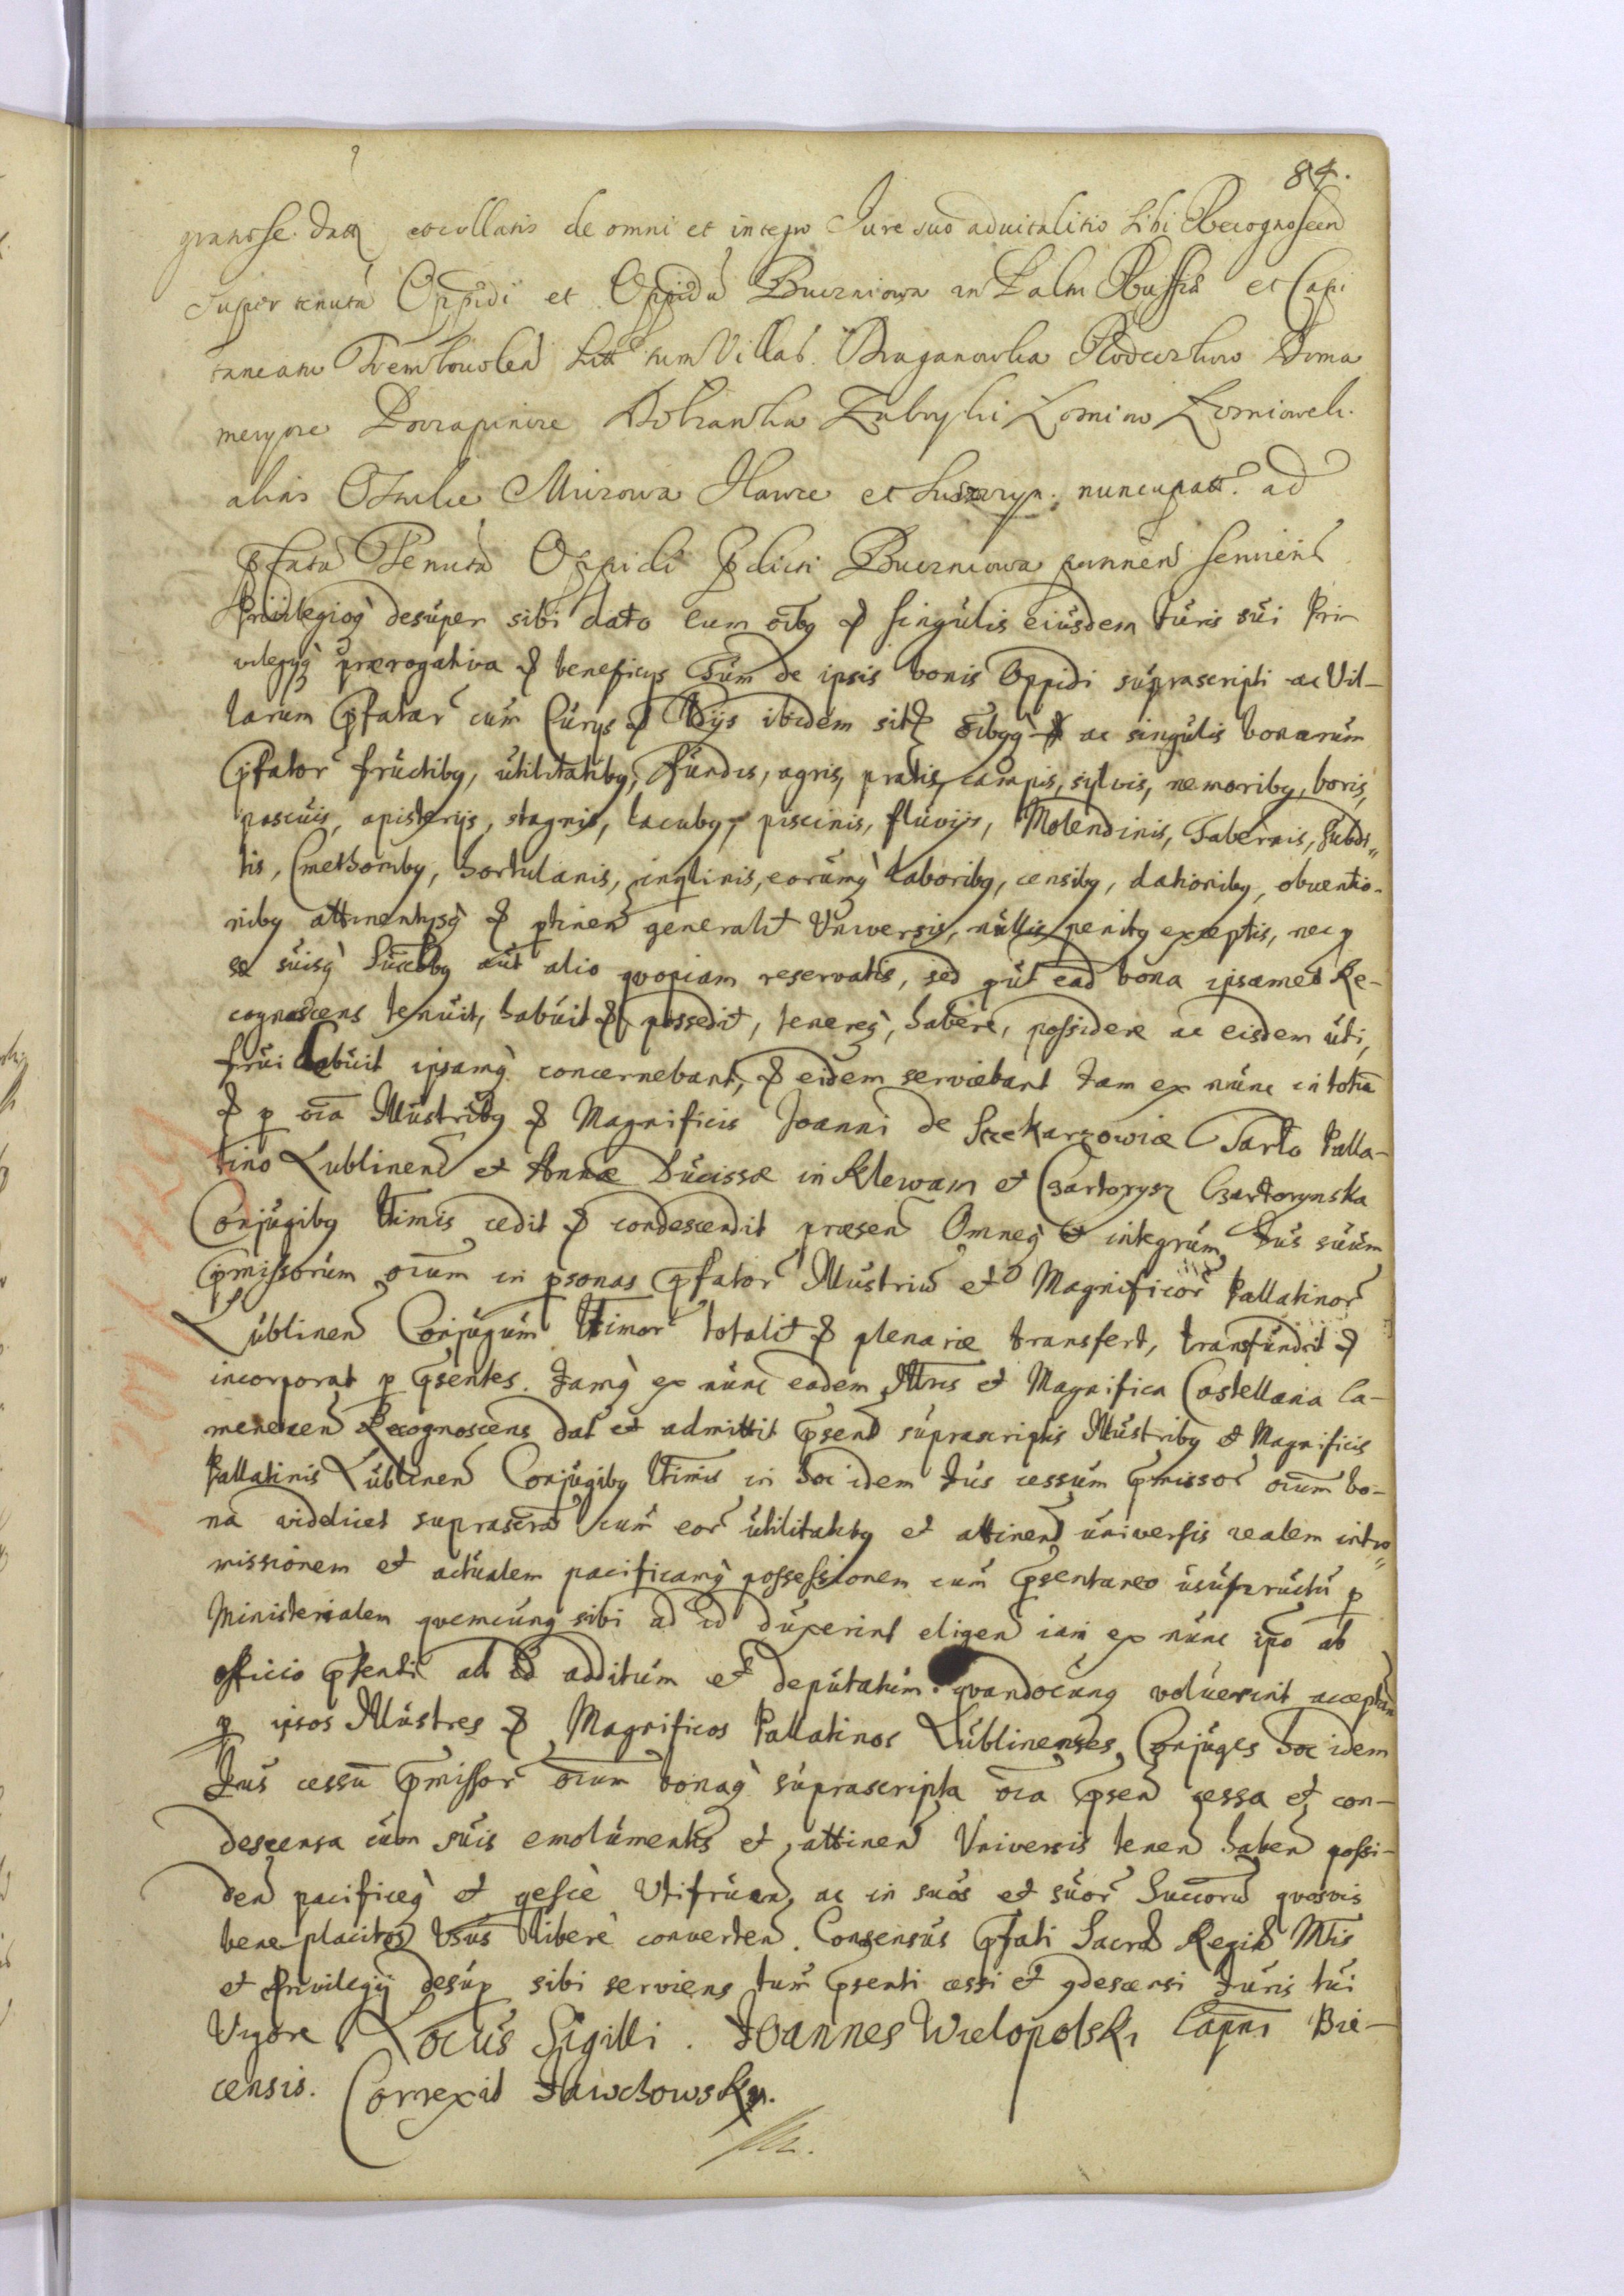 84.
gratiose datt et collatis de omni et integro Jure suo aduitalitio sibi Recognoscen
super tenuta Oppidi et Oppidu Buczniowa in Palatu Russia et Capi
taneatu Trembowolen sitt tum Villas Draganowka
Zabryki
alias Mizowa et nuncupatt. ad
pfata Tenuta Oppidi pdicti Buczniowa seruient
Priuilegioq desuper sibi dato cum oibg & singulis eiusdem Juris sui Pri
uilegijq praerogatiua & beneficijs Tum de ipsis bonis Oppidi suprascripti ac Vil-
larum pfatar cum Curijs & ibidem sitt oibgq ac singulis bonarum
pfator fructibg, utilitatibg, fundis, agris, pratis, campis, sylvis, nemoribg, boris,
pascuis, apisterijs, stagnis, lacubg, piscinis, fluvijs, Molendinis, Tabernis, subdi=
tis, Cmethonibg, hortulanis, inqlinis, eorumq laboribg, censibg, dationibg, obuentio-
nibg attinentijsq & ptinen generalit Vniversis, nullis penitg exceptis, nec p
se suisq Succbg aut alio qvopiam reservatis, sed put ead bona ipsamet Re-
cognoscens tenuit, habuit & possedit, tenereq, habere, possidere ac eisdem uti,
frui debuit ipsamq concernebant, & eidem serviebant Jam ex nunc in toto
& p oia Illustribg & Magnificis Joanni de Sczekarzowice Tarlo Palla-
tino Lublinen et Annae Ducissae in Klewam et Czartorysz Czartorynska
Conjugibg Ltimis cedit & condescendit praesen Omneq & integrum Jus suum
pmissorum oium in psonas pfator Illustriu et Magnificor Pallatinor
Lublinen Conjugum Ltimor totalit & plenarie transfert, transfundit &
incorporat p psentes. Jamq ex nunc eadem Illris et Magnifica Castellana Ca-
menecen Recognoscens dat et admittit psent suprascriptis Illustribg & Magnificis
Pallatinis Lublinen Conjugibg Ltimis in hoc idem Jus cessum pmissor oium bo-
na videlicet suprascra cum eor utilitatibg et attinen universis realem intro=
missionem et actualem pacificamq possessionem cum psentaneo usufructu p
Ministerialem qvemcunq sibi ad id duxerint eligen iam ex nunc ipo ab
officio psenti ad id additum et deputatum. qvandocunq voluerint acceptan
p ipsos Illustres & Magnificos Pallatinos Lublinenses Conjuges hoc idem
Jus cessu pmissor oium bonaq suprascripta oia psen cessa et con-
descensa cum suis emolumentis et attinen Vniversis tenen haben possi-
den pacificeq et qescie Vtifruen, ac in suos et suor Succoru qvosvis
bene placitos Usus libere converten. Consensus pfati Sacra Regia Mtis
et Privilegij desup sibi serviens tum psenti cessi et qdescensi Juris tui
Vigore Locus Sigilli. Joannes Wielopolski Capns Bie-
censis. Correxit Jawchowsky.